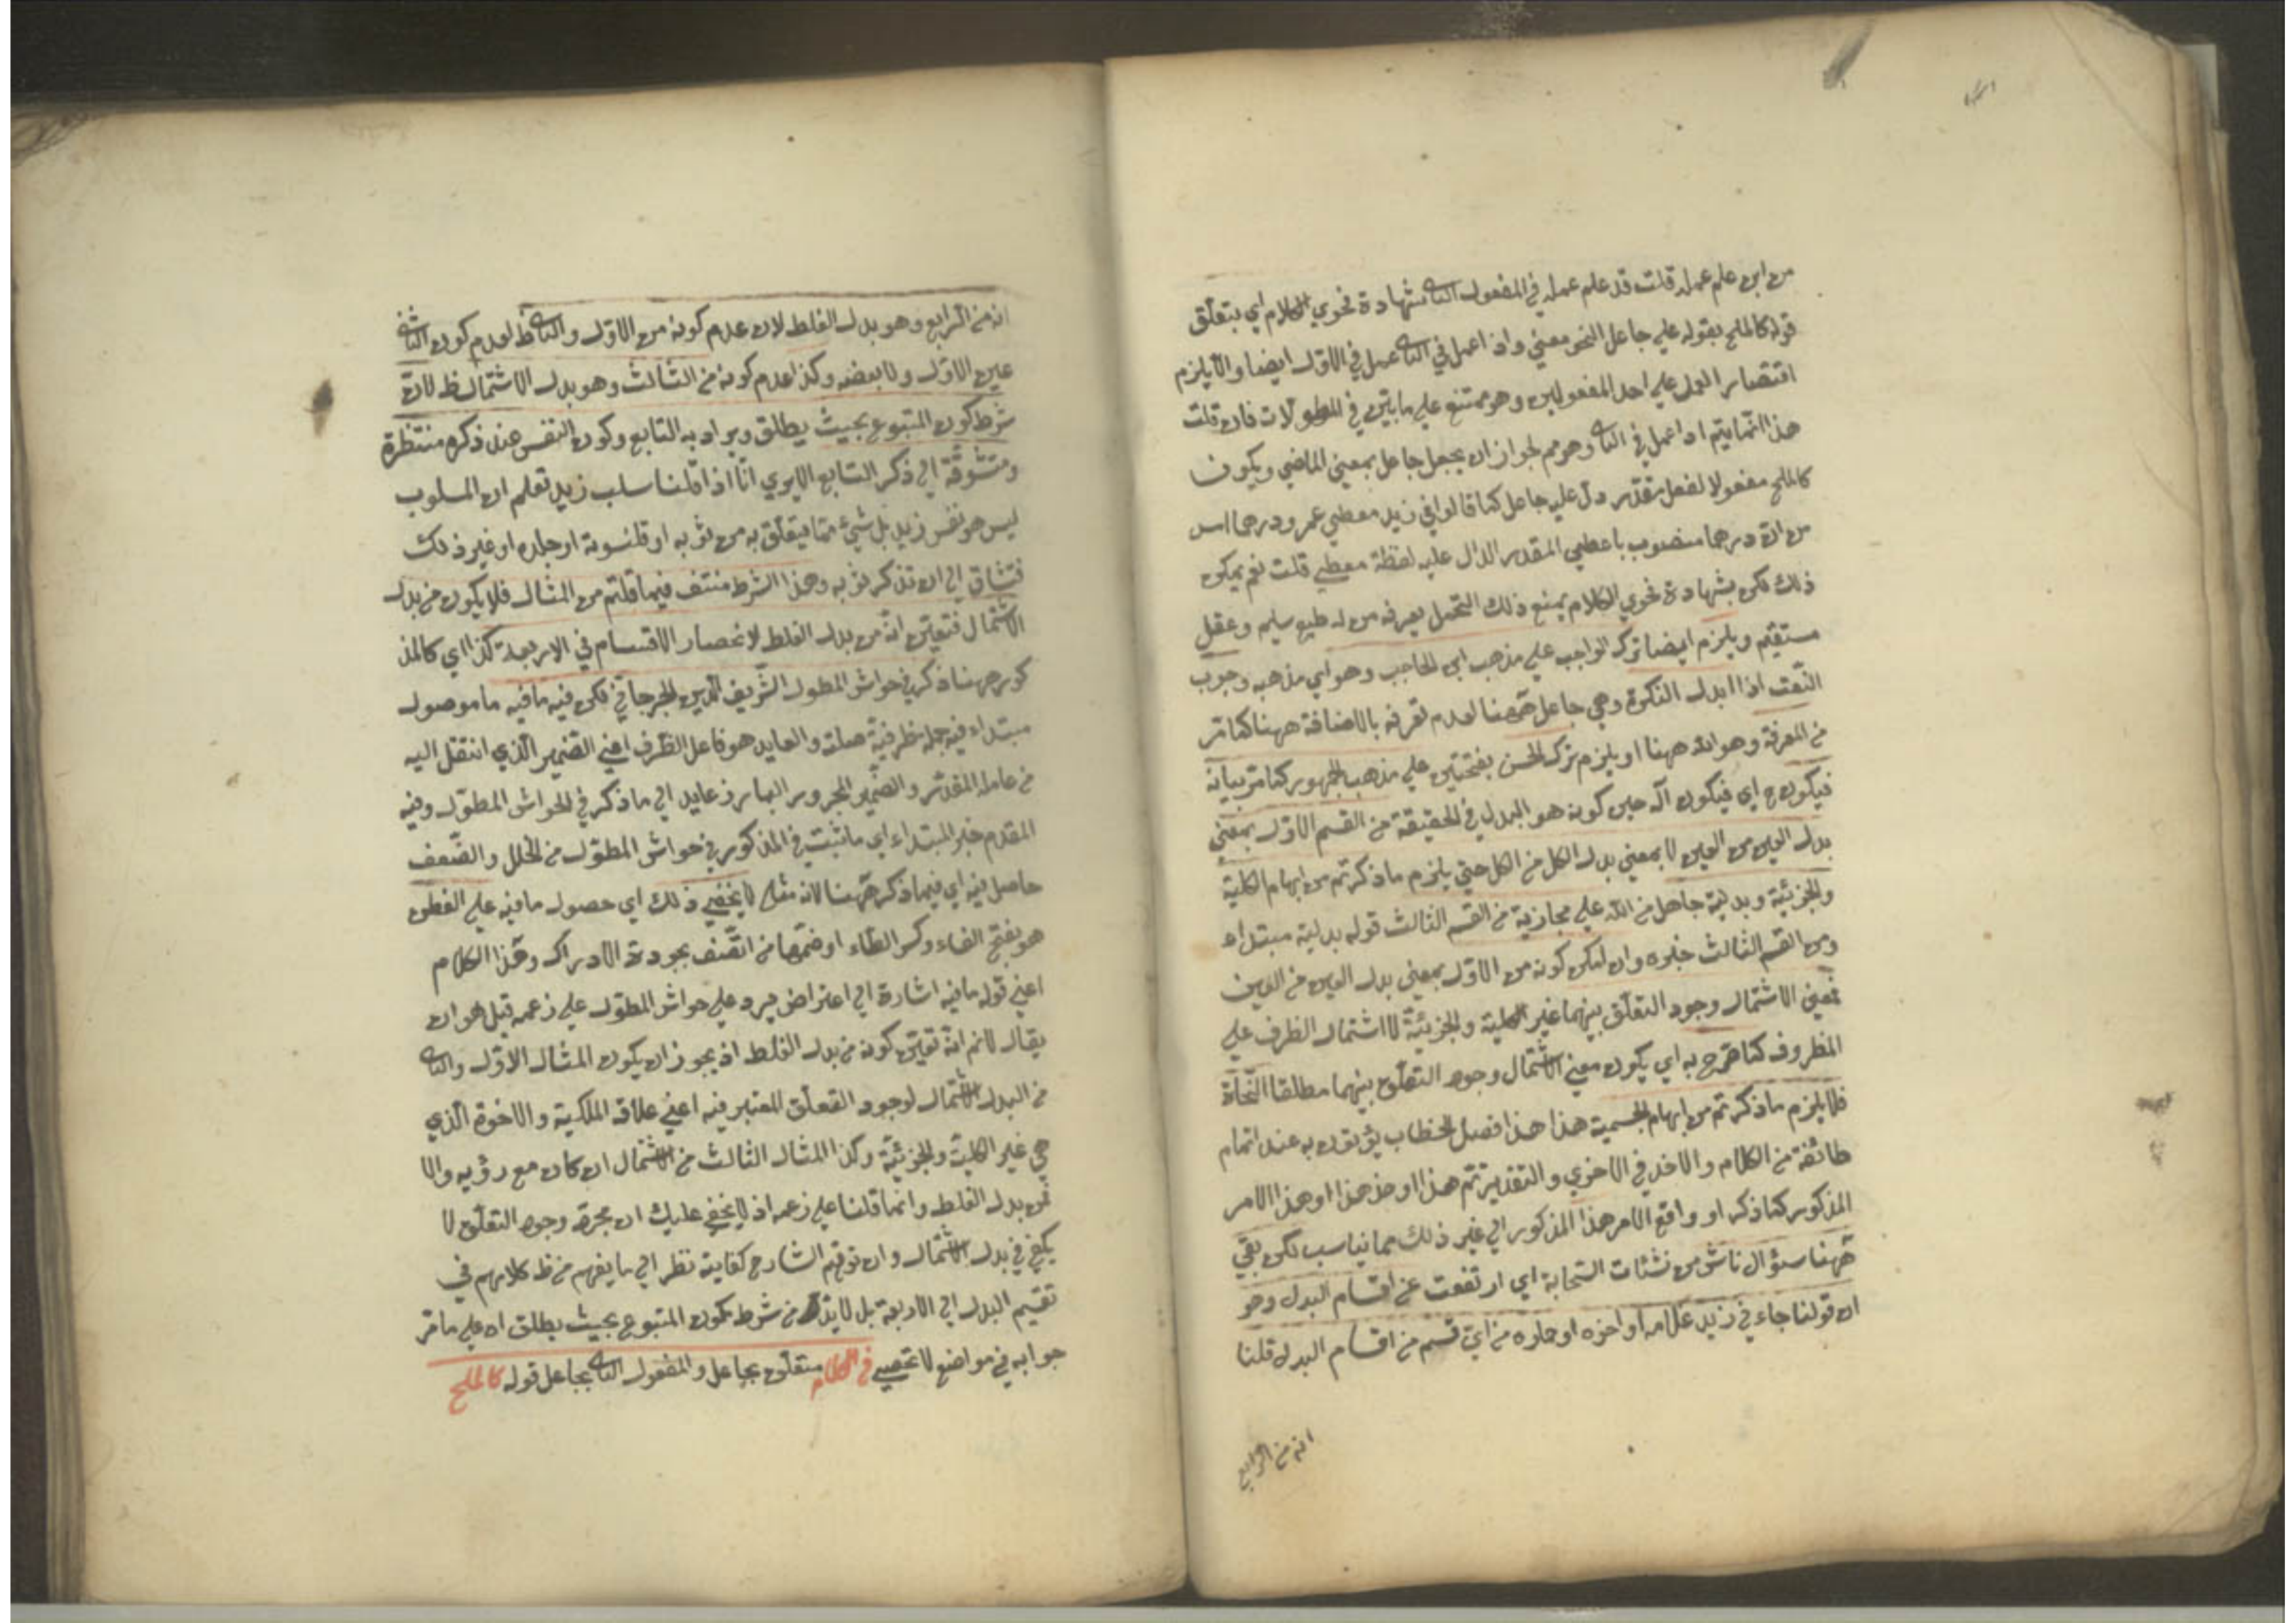 من اين علم عمله قلت قد علم عمله في المفعول الثا بشهادة فحوي الكلام اي يتعلق
قوله كالملح بقوله علي جاعل النحو معني واذا عمل في الثا عمل في الاول ايضا والا يلزم
اقتصار العمل علي احد المفعولين وهو ممتنع علي ما بين في المطولات فان قلت
هذا انما يتم اذا عمل في الثا وهو مم لجواز ان يجعل جاعل بمعني الماضي ويكون
كالملح مفعولا لفعل مقدر دل عليه جاعل كما قالوا في زيد معطي عمرو درهما امس
من ان درهما منصوب باعطي المقدر الدال عليه لفظة معطي قلت نعم يمكن
ذلك لكن بشهادة فحوي الكلام يمنع ذلك التحمل يعرفه من له طبع سليم وعقل
مستقيم ويلزم ايضا ترك الواجب علي مذهب ابن الحاجب وهو اي مذهبه وجوب
النعت اذا ابدل النكرة وهي جاعل ههنا لعدم تعرفه بالاضافة ههنا كما مر
من المعرفة وهو الله ههنا او يلزم ترك الحسن بفتحتين علي مذهب الجمهور كما مر بيانه
فيكون ح اي فيكون آله حين كونه هو البدل في الحقيقة من القسم الاول بمعني
بدل العين من العين لا بمعني بدل الكل من الكل حتي يلزم ما ذكرتم من ايهام الكلية
والجزئية وبدلية جاعل من الله علي مجازية من القسم الثالث قوله بدلية مبتداء
ومن القسم الثالث خبره وان لم يكن كونه من الاول بمعني بدل العين من العين
فمعني الاشتمال وجود التعلق بينهما غير الكلية والجزئية لا اشتمال الظرف علي
المظروف كما صرح به اي يكون معني الاشتمال وجود التعلق بينهما مطلقا النحاة
فلا يلزم ما ذكرتم من ايهام الجسمية هذا هذا فصل الخطاب يؤتون به عند اتمام
طائفة من الكلام والاخذ في الاخري والتقدير تم هذا او خذ هذا او هذا الامر
المذكور كما ذكر او واقع الامر هذا المذكور الي غير ذلك مما يناسب لكن بقي
ههنا سؤال ناش من نشئات السحابة اي ارتفعت عن اقسام البدل وهو
ان قولنا جاءني زيد غلامه او اخوه او حماره من اي قسم من اقسام البدل قلنا
انه من الرابع
انه من الرابع وهو بدل الغلط لان عدم كونه من الاول والثا ظ لعدم كون الثاني
عين الاول ولا بعضه وكذا عدم كونه من الثالث وهو بدل الاشتمال ظ لان
شرط كون المتبوع بحيث يطلق ويراد به التابع وكون النفس عند ذكره منتظرة
ومتشوقة الي ذكر التابع الا يري انا اذا قلنا سلب زيد تعلم ان المسلوب
ليس هو نفس زيد بل شيئ مما يتعلق به من ثوبه او قلنسوته او جلده او غير ذلك
فتشتاق الي ان تذكر ثوبه وهذا الشرط منتف فيما قلتم من المثال فلا يكون من بدل
الاشتمال فتعين انه من بدل الغلط لانحصار الاقسام في الاربعة كذا اي كالمذ
كور ههنا ذكر في حواش المطول الشريف الدين الجرجاني لكن فيه ما فيه ما موصول
مبتداء فيه جملة ظرفية صلة والعايد هو فاعل الظرف اعني الضمير الذي انتقل اليه
من عامله المقدر والضمير المجرور البارز عايد الي ما ذكر في الحواش المطول وفيه
المقدم خبر المبتداء اي ما ثبت في المذكور في حواش المطول من الخلل والضعف
حاصل فيه اي فيما ذكر ههنا لانه مثله لا يخفي ذلك اي حصول ما فيه علي الفطن
هو بفتح الفاء وكسر الطاء او ضمها من اتصف بجودة الادراك وهذا الكلام
اعني قوله ما فيه اشارة الي اعتراض يرد علي حواش المطول علي زعمه قبل هو ان
يقال لانم انه تعين كونه من بدل الغلط اذ يجوز ان يكون المثال الاول والثا
من البدل الاشتمال لوجود التعلق المعتبر فيه اعني علاقة الملكية والاخوة الذي
هي غير الكلية والجزئية وكذا المثال الثالث من الاشتمال ان كان مع رؤيه والا
فمن بدل الغلط وانما قلنا علي زعمه اذ لا يخفي عليك ان مجرد وجود التعلق لا
يكفي في بدل الاشتمال وان توهم الشارح كفايته نظر الي ما يفهم من ظ كلامهم في
تقسيم البدل الي الاربعة بل لا بد من شرط كون المتبوع بحيث يطلق اه علي ما مر
جوابه في مواضع لا تحصي في الكلام متعلق بجاعل والمفعول الثا بجاعل قوله كالملح